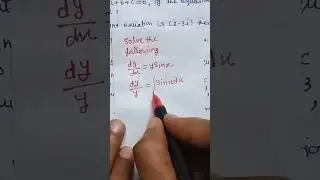 t + 6 + C = 0, if the equation
nt equation is (2-3i) the
Solve the
following
dy/dx = y sinx
dy/y = ∫sinx dx